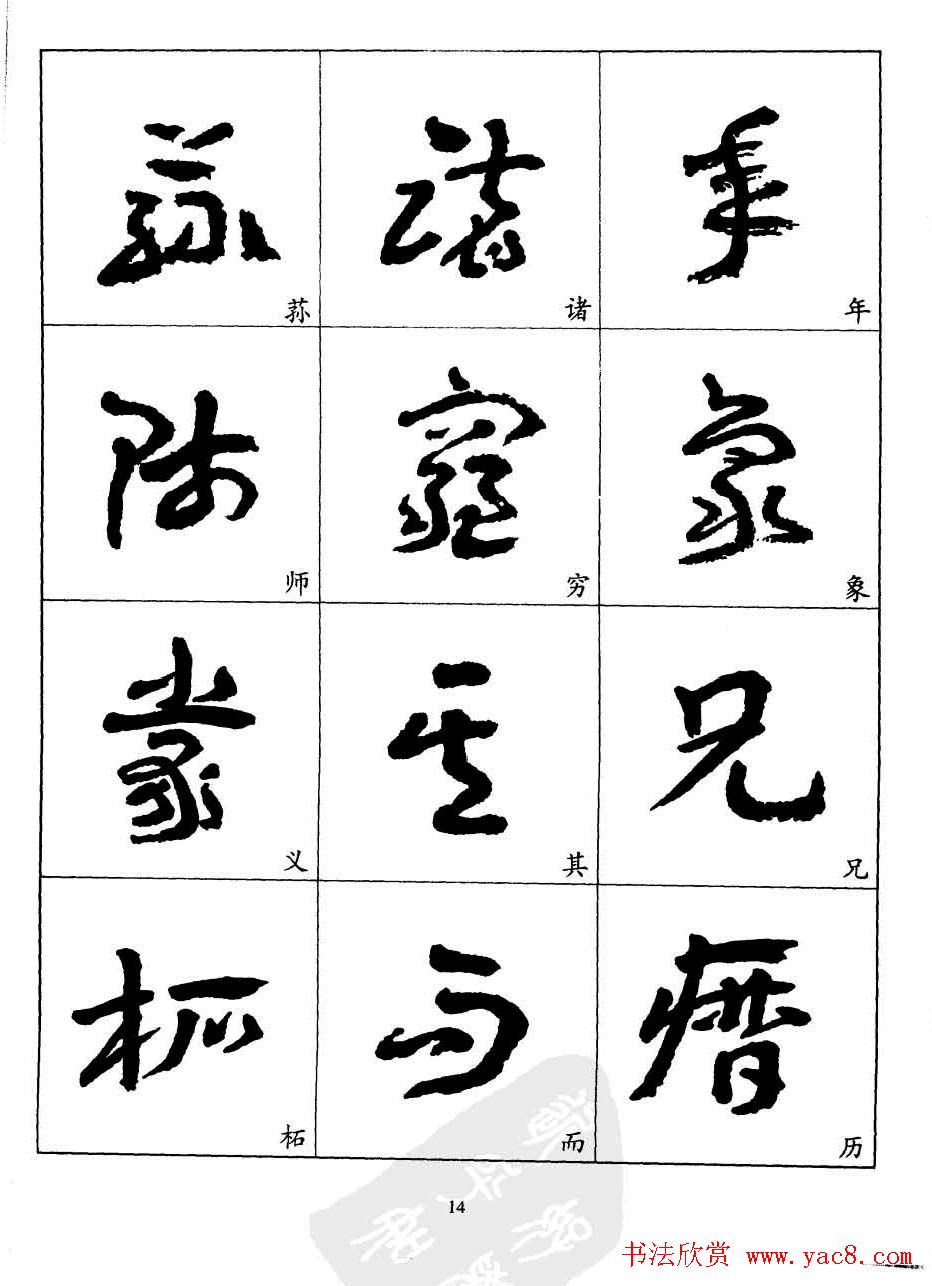 蓀 諸 年
荪 诸 年
師 窮 象
师 穷 象
其 兄
义 其 兄
而 曆
柘 而 历
14
书法欣赏 www.yac8.com